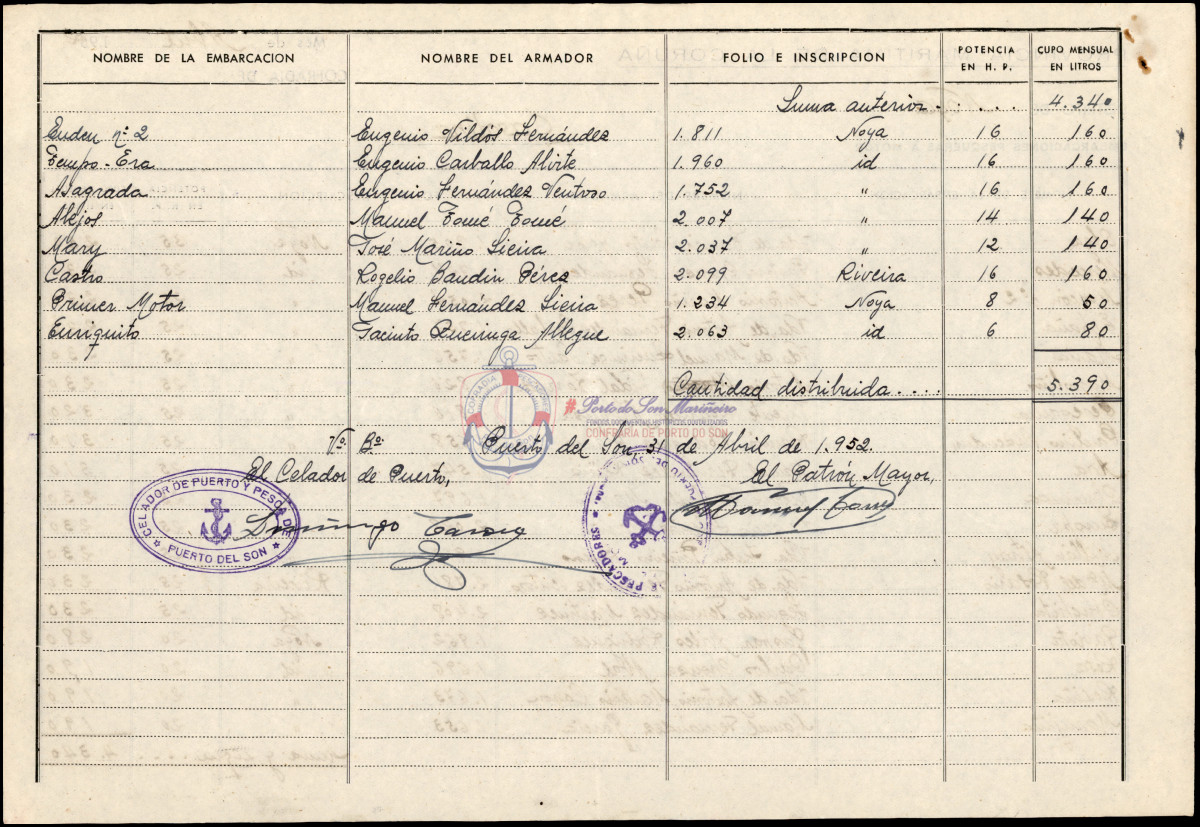 NOMBRE DE LA EMBARCACION NOMBRE DEL ARMADOR FOLIO E INSCRIPCION POTENCIA EN H. P. CUPO MENSUAL EN LITROS
Suma anterior . . . . . 4.340
Euden nº 2 Eugenio Vildós Fernández 1.811 Noya 16 160
Tempo-Era Eugenio Carballo Alvite 1.960 id 16 160
Asagrada Eugenio Fernández Ventoso 1.752 " 16 160
Alejos Manuel Tomé Tomé 2.007 " 14 140
Mary José Mariño Sieira 2.037 " 12 140
Castro Rogelio Baudin Pérez 2.099 Riveira 16 160
Primer Motor Manuel Fernández Sieira 1.234 Noya 8 50
Enriquito Jacinto Queiruga Allegue 2.063 id 6 80
Cantidad distribuida . . . . 5.390
#Porto do Son Mariñeiro
FONDOS DOCUMENTAIS HISTÓRICOS DIXITALIZADOS
CONFRARÍA DE PORTO DO SON
Vº. Bº. Puerto del Son 31 de Abril de 1.952.
El Celador de Puerto, El Patrón Mayor,
CELADOR DE PUERTO Y PESCA DE
PUERTO DEL SON
DE PESCADORES
Domingo
Manuel